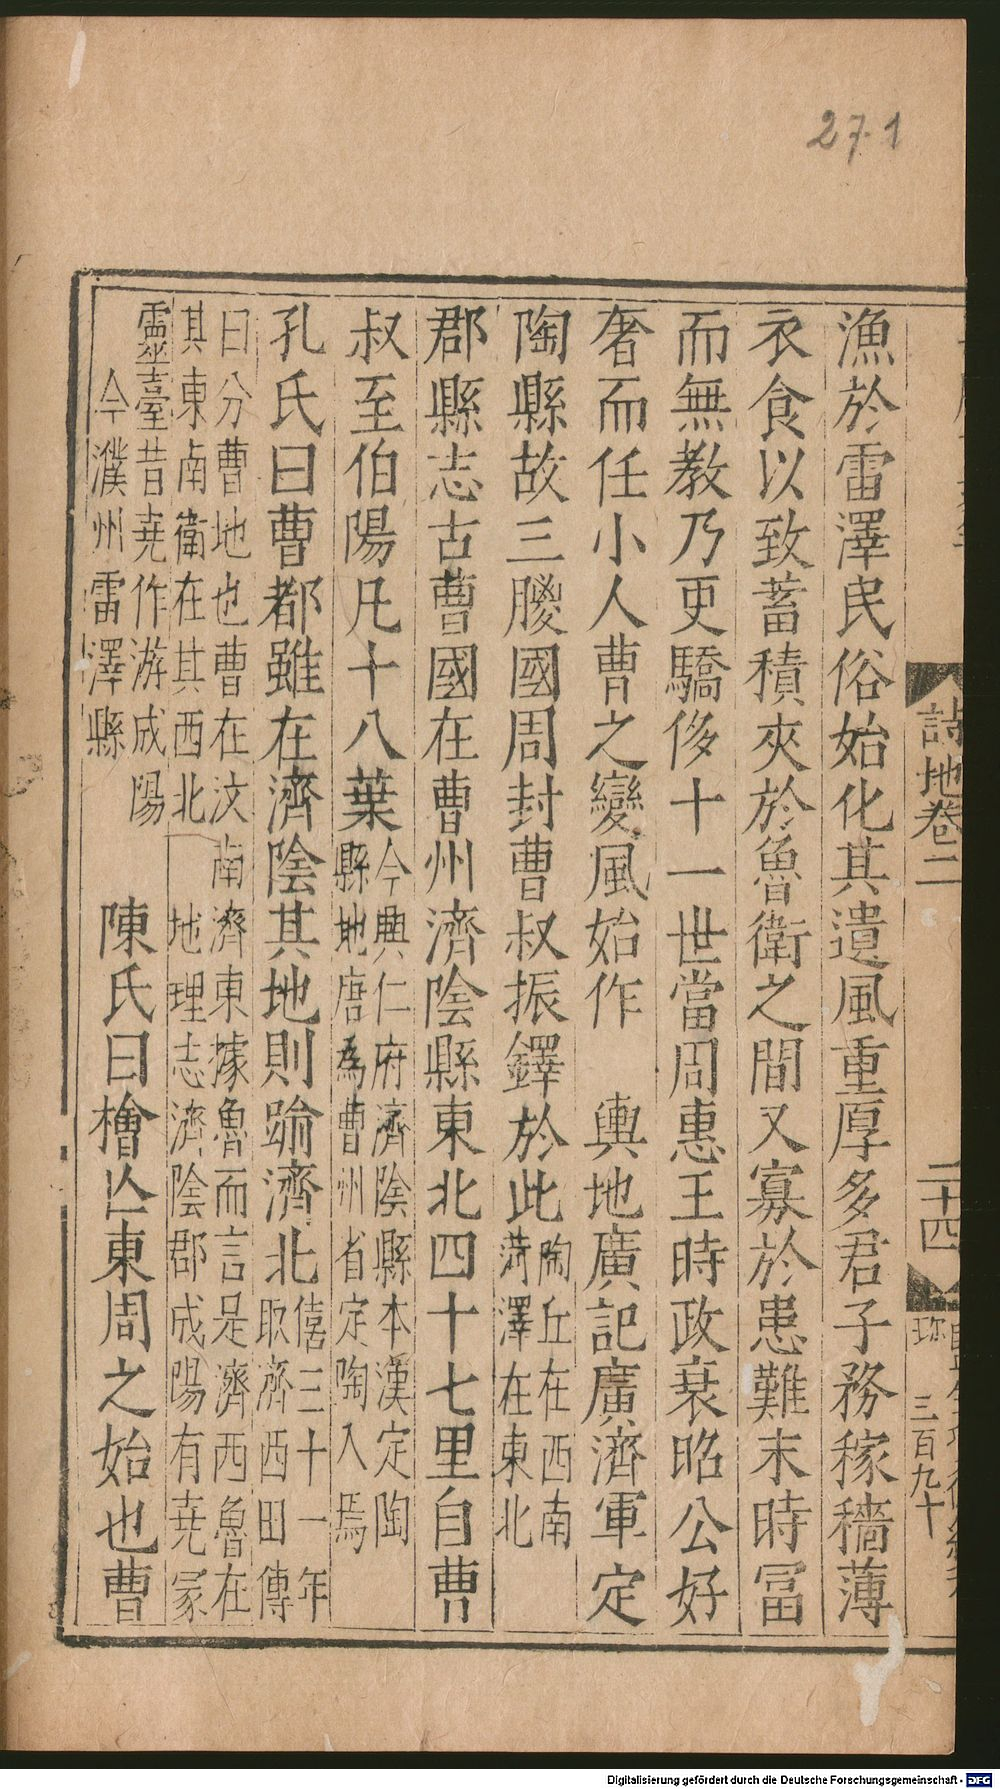 27.1
詩地卷二
二十四
三百九十
漁於雷澤民俗始化其遺風重厚多君子務稼穡薄
衣食以致蓄積夾於魯衛之間又寡於患難末時冨
而無教乃更驕侈十一世當周惠王時政衰昭公好
奢而任小人曹之變風始作　輿地廣記廣濟軍定
陶縣故三朡國周封曹叔振鐸於此陶丘在西南菏澤在東北
郡縣志古曹國在曹州濟陰縣東北四十七里自曹
叔至伯陽凡十八葉今興仁府濟陰縣本漢定陶縣地唐爲曹州省定陶入焉
孔氏曰曹都雖在濟陰其地則踰濟北僖三十一年取濟西田傳
曰分曹地也曹在汶南濟東據魯而言是濟西魯在其東南衛在其西北　地理志濟陰郡成陽有尭冢
靈臺昔尭作游成陽今濮州雷澤縣　陳氏曰檜亾東周之始也曹
Digitalisierung gefördert durch die Deutsche Forschungsgemeinschaft - DFG